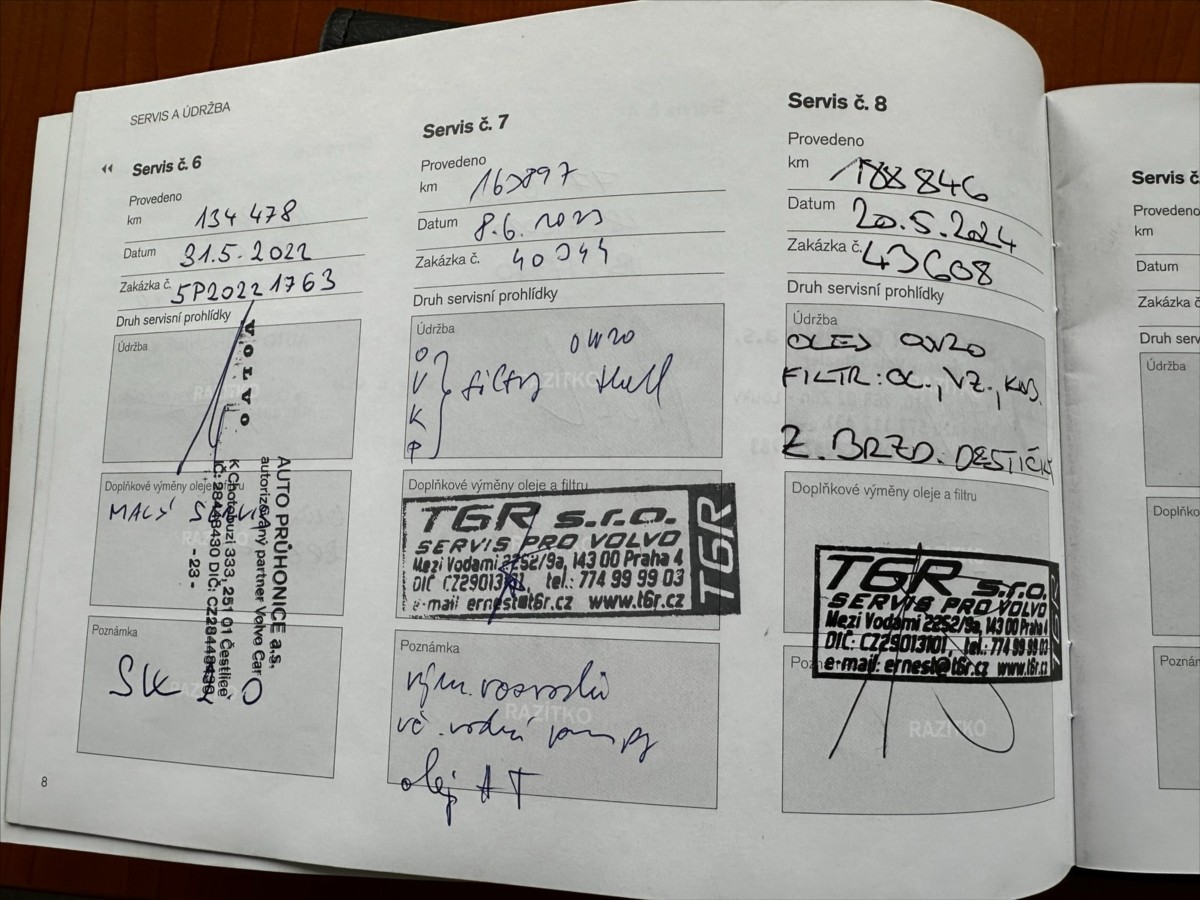 SERVIS A ÚDRŽBA
Servis č. 6
Provedeno
km 134 478
Datum 31.5.2022
Zakázka č. SP2022 1763
Druh servisní prohlídky
Údržba
RAZÍTKO
VOLVO
AUTO PRŮHONICE a.s.
autorizovaný partner Volvo Car
K Chotobuzi 333, 251 01 Čestlice
IČ: 28448430 DIČ: CZ28448430
- 23 -
Doplňkové výměny oleje a filtru
MALÝ
Poznámka
SK
8
Servis č. 7
Provedeno
km 163897
Datum 8.6.2023
Zakázka č. 40344
Druh servisní prohlídky
Údržba
0W20
O
V
K
P
filtry Shell
RAZÍTKO
Doplňkové výměny oleje a filtru
T6R s.r.o.
SERVIS PRO VOLVO
Mezi Vodami 2252/9a, 143 00 Praha 4
DIČ CZ29013101, tel.: 774 99 99 03
e-mail ernest@t6r.cz www.t6r.cz
T6R
Poznámka
vým. rozvodů
vč. vodní pumpy
olej AT
RAZÍTKO
Servis č. 8
Provedeno
km 188 846
Datum 20.5.2024
Zakázka č. 43608
Druh servisní prohlídky
Údržba
OLEJ 0W20
FILTR: OL., VZ., KAB.
Z. BRZD. DESTIČKY
Doplňkové výměny oleje a filtru
T6R s.r.o.
SERVIS PRO VOLVO
Mezi Vodami 2252/9a, 143 00 Praha 4
DIČ: CZ29013101, tel.: 774 99 99 03
e-mail: ernest@t6r.cz www.t6r.cz
Pozn
RAZÍTKO
Servis č.
Provedeno
km
Datum
Zakázka č.
Druh serv
Údržba
Doplňko
Poznám